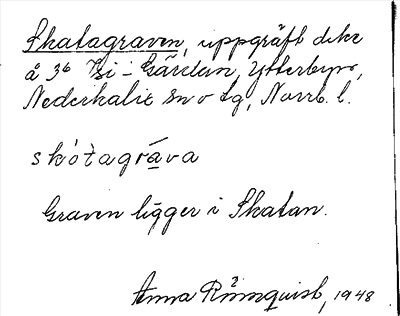 Skatagraven, uppgräft dike
å 36 Gården, Ytterbyn,
Nederkalix sn o tg, Norrb. l.
skȯtagrava
Graven ligger i Skatan.
Anna Rönnquist, 1948